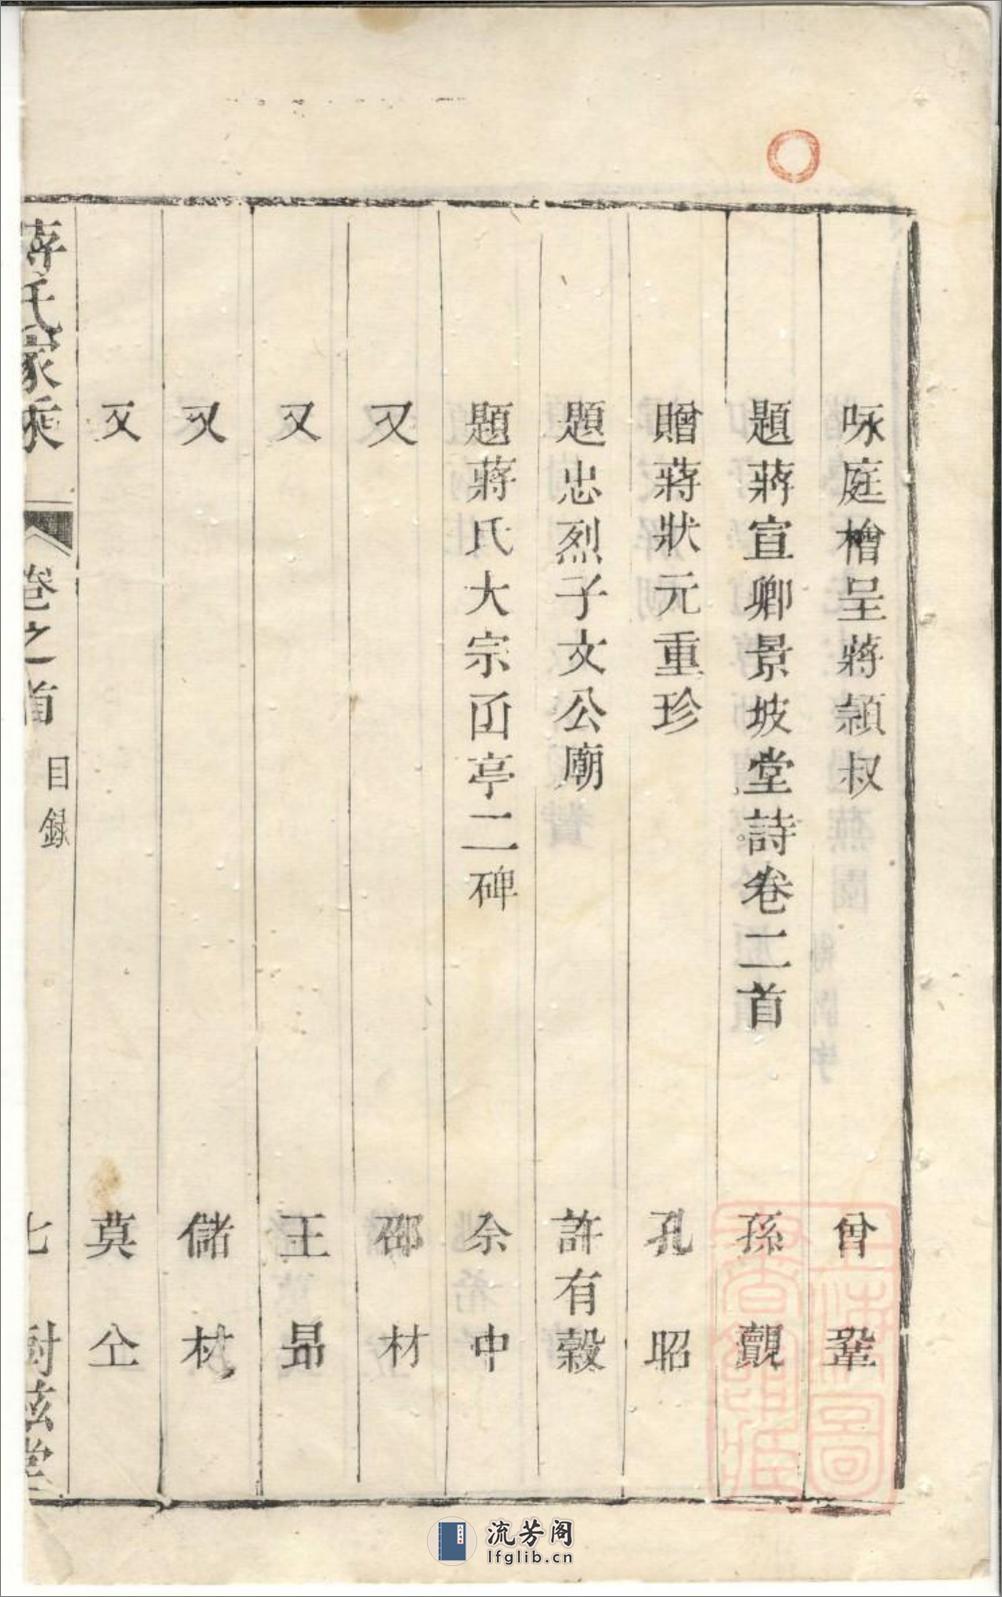 咏庭檜呈蔣頴叔　曾鞏
題蔣宣卿景坡堂詩卷二首　孫覿
贈蔣狀元重珍　孔昭
題忠烈子文公廟　許有穀
題蔣氏大宗函亭二碑　余中
又　邵材
又　王昂
又　儲材
又　莫仝
蔣氏家乘　卷之首　目録　七
上海圖書館藏
流芳阁
lfglib.cn